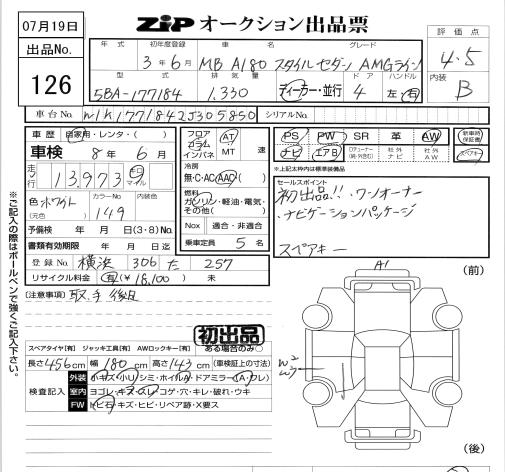 07月19日
出品No.
126
ZIP オークション出品票
評価点
4.5
内装
B
年式 初年度登録 車名 グレード
3年6月 MB A180 スタイルセダン AMGライン
型式 排気量 ドア ハンドル
5BA-177184 1.330 ディーラー・並行 4 左・右
車台No. W1K1771842J305850 シリアルNo.
車歴 自家用・レンタ・( )
車検 8年6月
走行 13,973 キロ マイル
色 ホワイト (元色) カラーNo. 149
予備検 年 月 日 (3・8) No.
書類有効期限 年 月 日迄
登録No. 横浜 306 た 257
リサイクル料金 有(¥18,100) 未
フロア コラム インパネ AT MT 速
冷房 無・C・AC・AAC
燃料 ガソリン・軽油・電気・その他( )
Nox 適合・非適合
乗車定員 5名
PS PW SR 革 AW 新車時保証書
ナビ エアB 社外ナビ 社外AW スペアキー
*上記太枠内は標準装備品
セールスポイント
初出品!! ワンオーナー
ナビゲーションパッケージ
スペアキー
[注意事項] 取・手 後日
初出品
スペアタイヤ[有] ジャッキ工具[有] AWロックキー[有] ある場合のみ○
長さ456cm 幅180cm 高さ143cm (車検証上の寸法)
検査記入
外装 小キズ・小U・シミ・ホイルA・ドアミラー(A・ワレ)
室内 ヨゴレ・キズ・スレ・コゲ・穴・キレ・破れ・ウキ
FW トビ石・キズ・ヒビ・リペア跡・X要ス
※ご記入の際はボールペンで強くご記入下さい。
A1
(前)
W2
W3
(後)